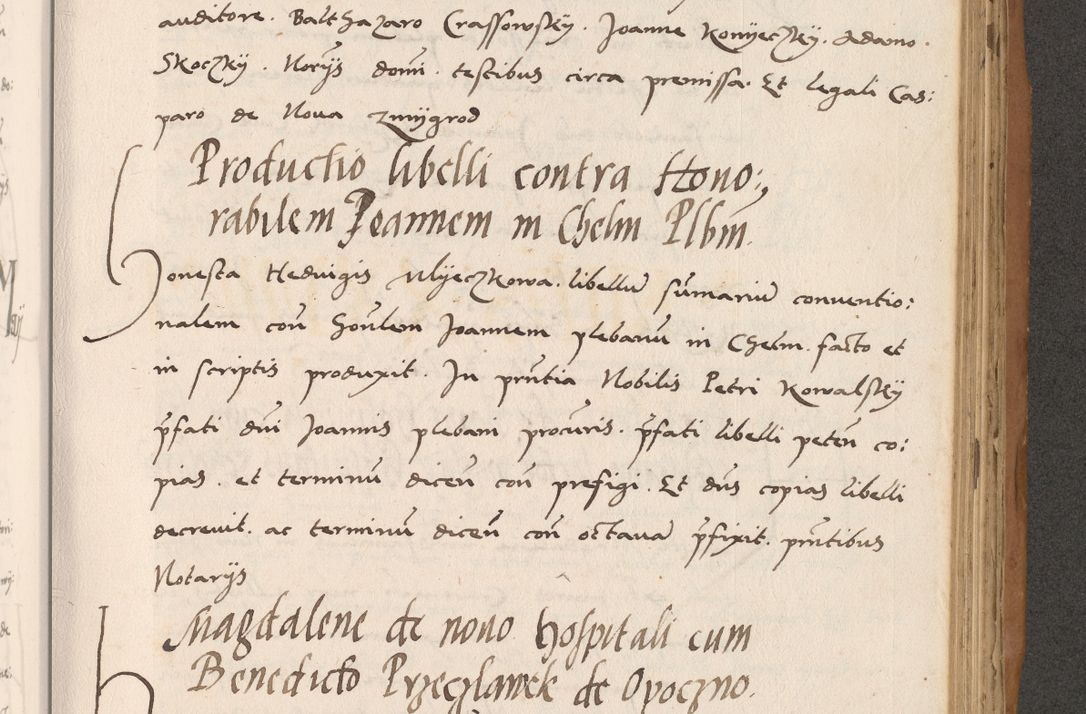 auditore. Balthazaro Crassowsky. Joanne Konyeczky. Adamo.
Skoczky. Noriis domi. testibus circa premissa. Et legali Cas:
paro de Nova Zmygrod
Productio libelli contra Hono:,
rabilem Joannem in Chelm Plbm.
Honesta Hedvigis Mlyeczkowa. libellu sumariu conventio:
nalem con Honlem Joannem plebanu in Chelm. facto et
in scriptis produxit. In pntia Nobilis Petri Kowalsky
pfati dni Joannis plebani procuris. pfati libelli peten co:
pias. et terminu dicen con prefigi. Et dns copias libelli
decrevit. ac terminu dicen con octava pfixit. pntibus
Notariis
Magdalene de novo hospitali cum
Benedicto Przeczlawek de Opoczno.